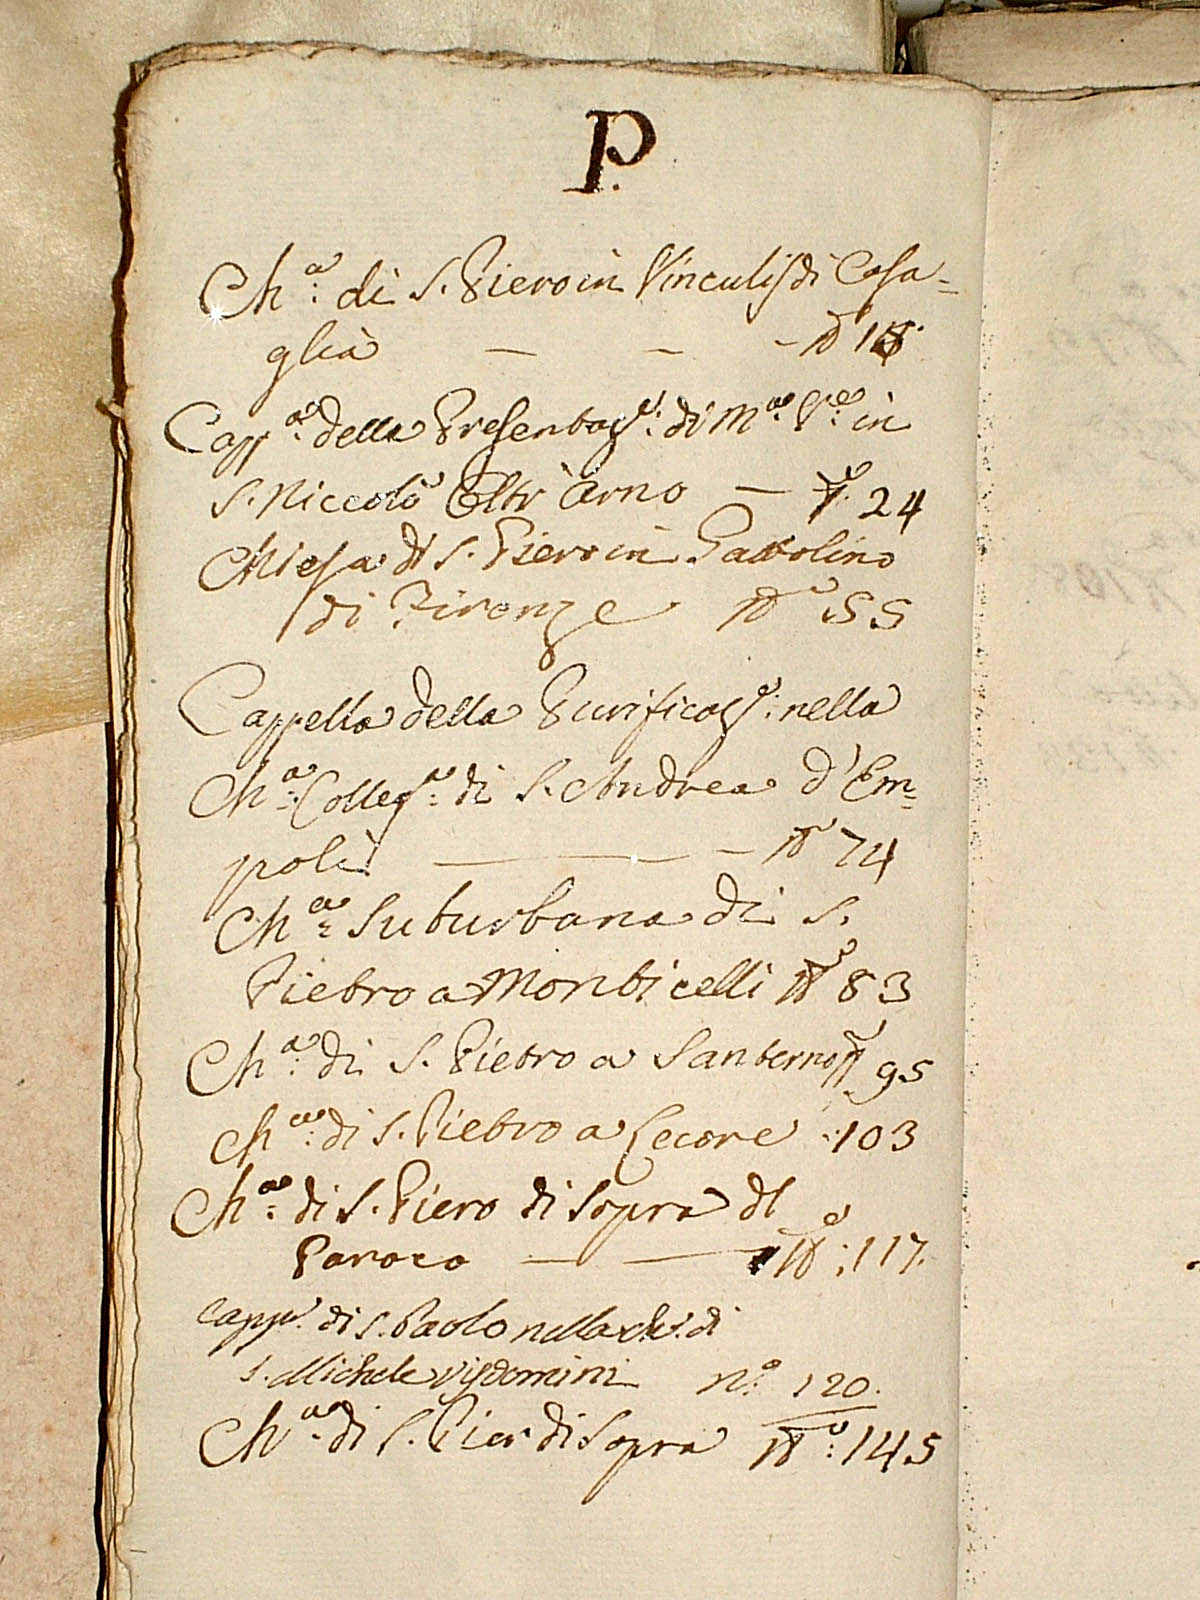 P.
Ch.a di S. Piero in Vinculis di Casa=
glia — — - N.o 18.
Capp.a della Presentaz.e di M.a V.e in
S. Niccolò Oltr'Arno — N.o 24
Chiesa di S. Piero in Gattolino
di Firenze N.o 55
Cappella della Purificaz.e nella
Ch.a Colleg.a di S. Andrea d'Em=
poli — - N.o 74
Ch.a Suburbana di S.
Pietro a Monticelli N.o 83
Ch.a di S. Pietro a Santerno N.o 95
Ch.a di S. Pietro a Lecore 103
Ch.a di S. Piero di Sopra dl
Paroco — — N.o 117.
Capp.a di S. Paolo nella Ch.a di
S. Michele Visdomini n.o 120.
Ch.a di S. Pier di Sopra N.o 145